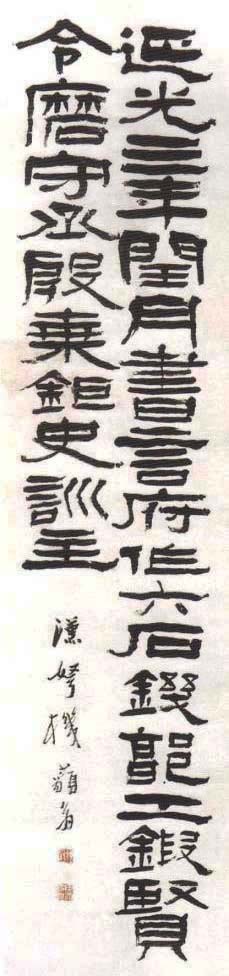 延光三年閏月書言府作六石鐖郭工鍜賢
令磨守丞殷乗鉅史訓主
漢弩機 藐翁